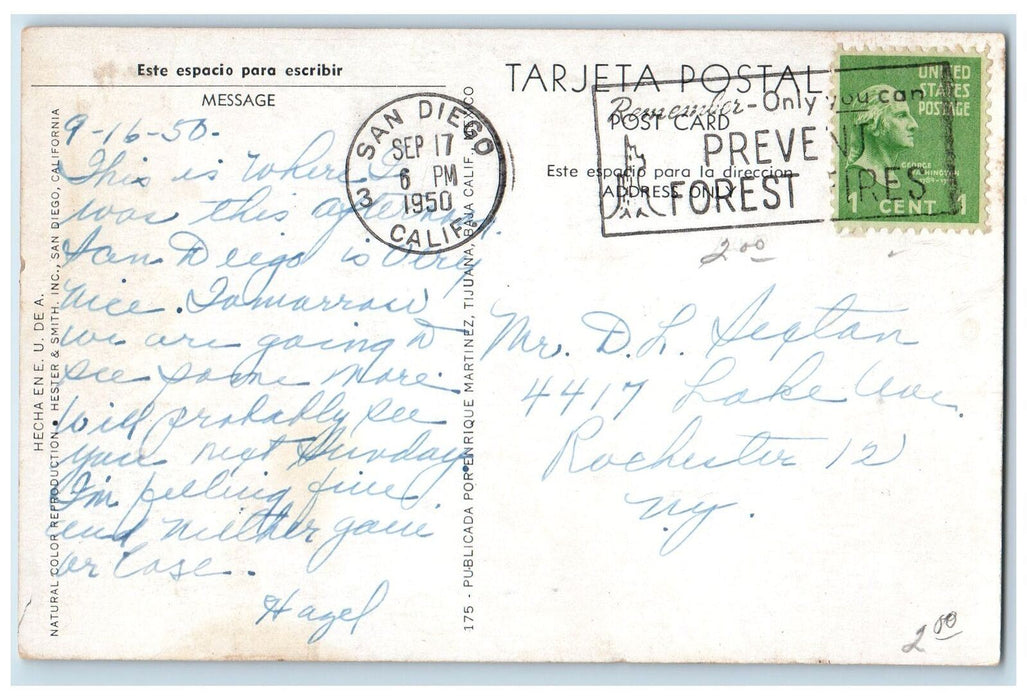 Este espacio para escribir
MESSAGE
9-16-50.
This is where I
was this afternoon.
San Deigo is very
nice. Tomarrow
we are going to
see some more.
Will probably see
you next Sunday.
I'm feeling fine
and neither gain
or lose.
Hazel
HECHA EN E. U. DE A.
NATURAL COLOR REPRODUCTION • HESTER & SMITH, INC., SAN DIEGO, CALIFORNIA
175 - PUBLICADA POR ENRIQUE MARTINEZ, TIJUANA, BAJA CALIF., MEXICO
SAN DIEGO
SEP 17
6 PM
1950
3
CALIF.
TARJETA POSTAL
POST CARD
Este espacio para la direccion
ADDRESS ONLY
Remember - Only you can
PREVENT
FOREST FIRES
UNITED
STATES
POSTAGE
GEORGE
WASHINGTON
1 CENT 1
2.00
Mr. D. L. Sexton
4417 Lake Ave.
Rochester 12
N.Y.
2.00